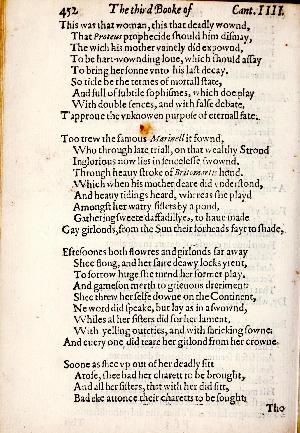 452 The third Booke of Cant. IIII.
This was that woman, this that deadly wownd,
That Proteus prophecide should him dismay,
The wich his mother vainely did expownd,
To be hart-wownding loue, which should assay
To bring her sonne vnto his last decay.
So ticle be the termes of mortall state,
And full of subtile sophismes, which doe play
With double sences, and with false debate,
T'approue the vnknowen purpose of eternall fate.
Too trew the famous Marinell it fownd,
Who through late triall, on that wealthy Strond
Inglorious now lies in sencelesse swownd,
Through heauy stroke of Britomartis hond.
Which when his mother deare did vnderstond,
And heauy tidings heard, whereas she playd
Amongst her watry sisters by a pond,
Gathering sweete daffadillyes, to haue made
Gay girlonds, from the Sun their forheads fayr to shade,
Eftesoones both flowres and girlonds far away
Shee flong, and her faire deawy locks yrent,
To sorrow huge she turnd her former play,
And gameson merth to grieuous dreriment:
Shee threw herselfe downe on the Continent,
Ne word did speake, but lay as in a swownd,
Whiles al her sisters did for her lament,
With yelling outcries, and with shricking sowne;
And euery one did teare her girlond from her crowne.
Soone as shee vp out of her deadly fitt
Arose, shee bad her charett to be brought,
And all her sisters, that with her did sitt,
Bad eke attonce their charetts to be sought;
Tho